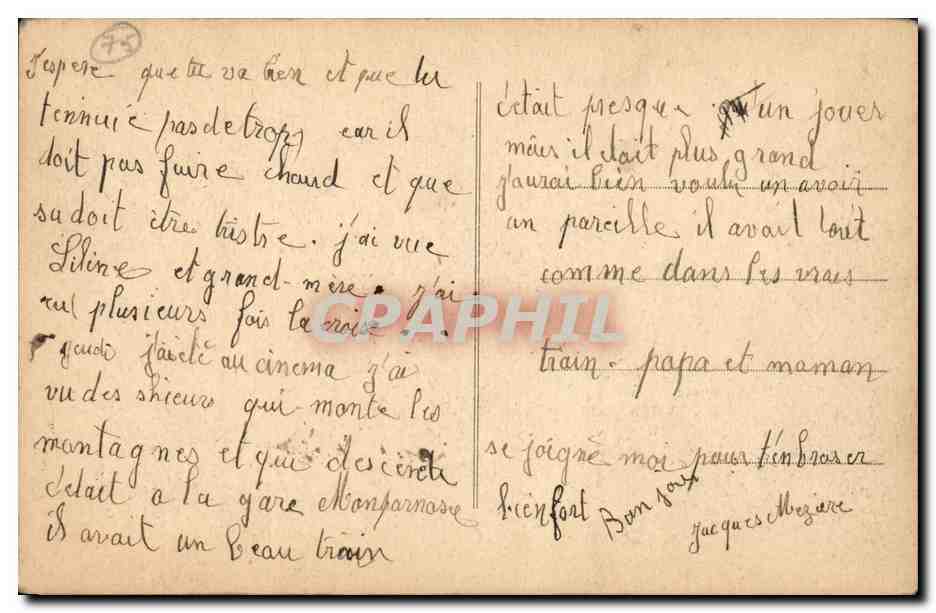 75
J'espere que tu va bien et que tu
t'ennuie pas de trop car il
doit pas faire chaud et que
sa doit être tristre. j'ai vue
Liline et grand-mère. j'ai
eu plusieurs fois la croise
jeudi j'ai eté au cinema j'ai
vu des skieurs qui monte les
montagnes et qui descend
c'était a la gare Monparnasse
il avait un beau train
c'était presque un jouer
mais il était plus grand
j'aurai bien voulu un avoir
un pareille il avait tout
comme dans les vrais
train. papa et maman
se joigne moi pour t'enbraser
bien fort
Bon jour
Jacques Mezière
CPAPHIL